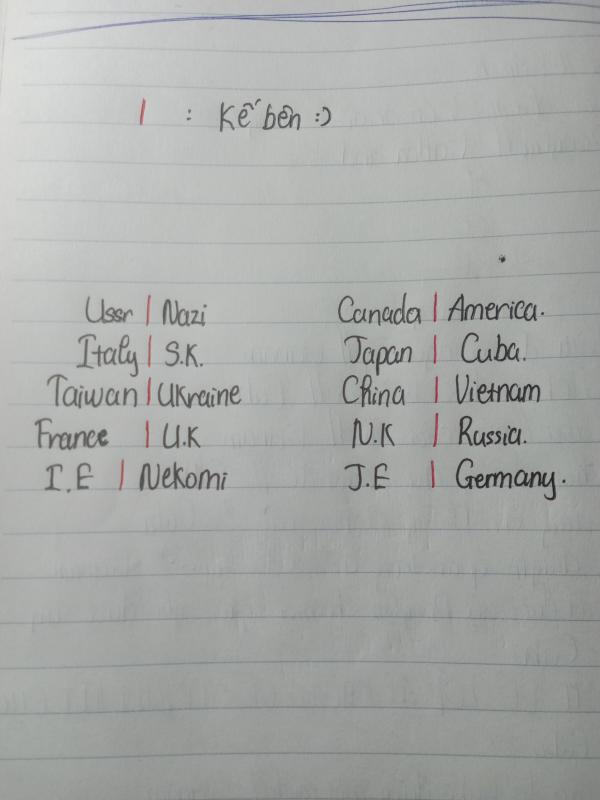 | : Kế bên :)
Ussr | Nazi
Italy | S.K.
Taiwan | Ukraine
France | U.K
I.E | Nekomi
Canada | America.
Japan | Cuba.
China | Vietnam
N.K | Russia.
J.E | Germany.